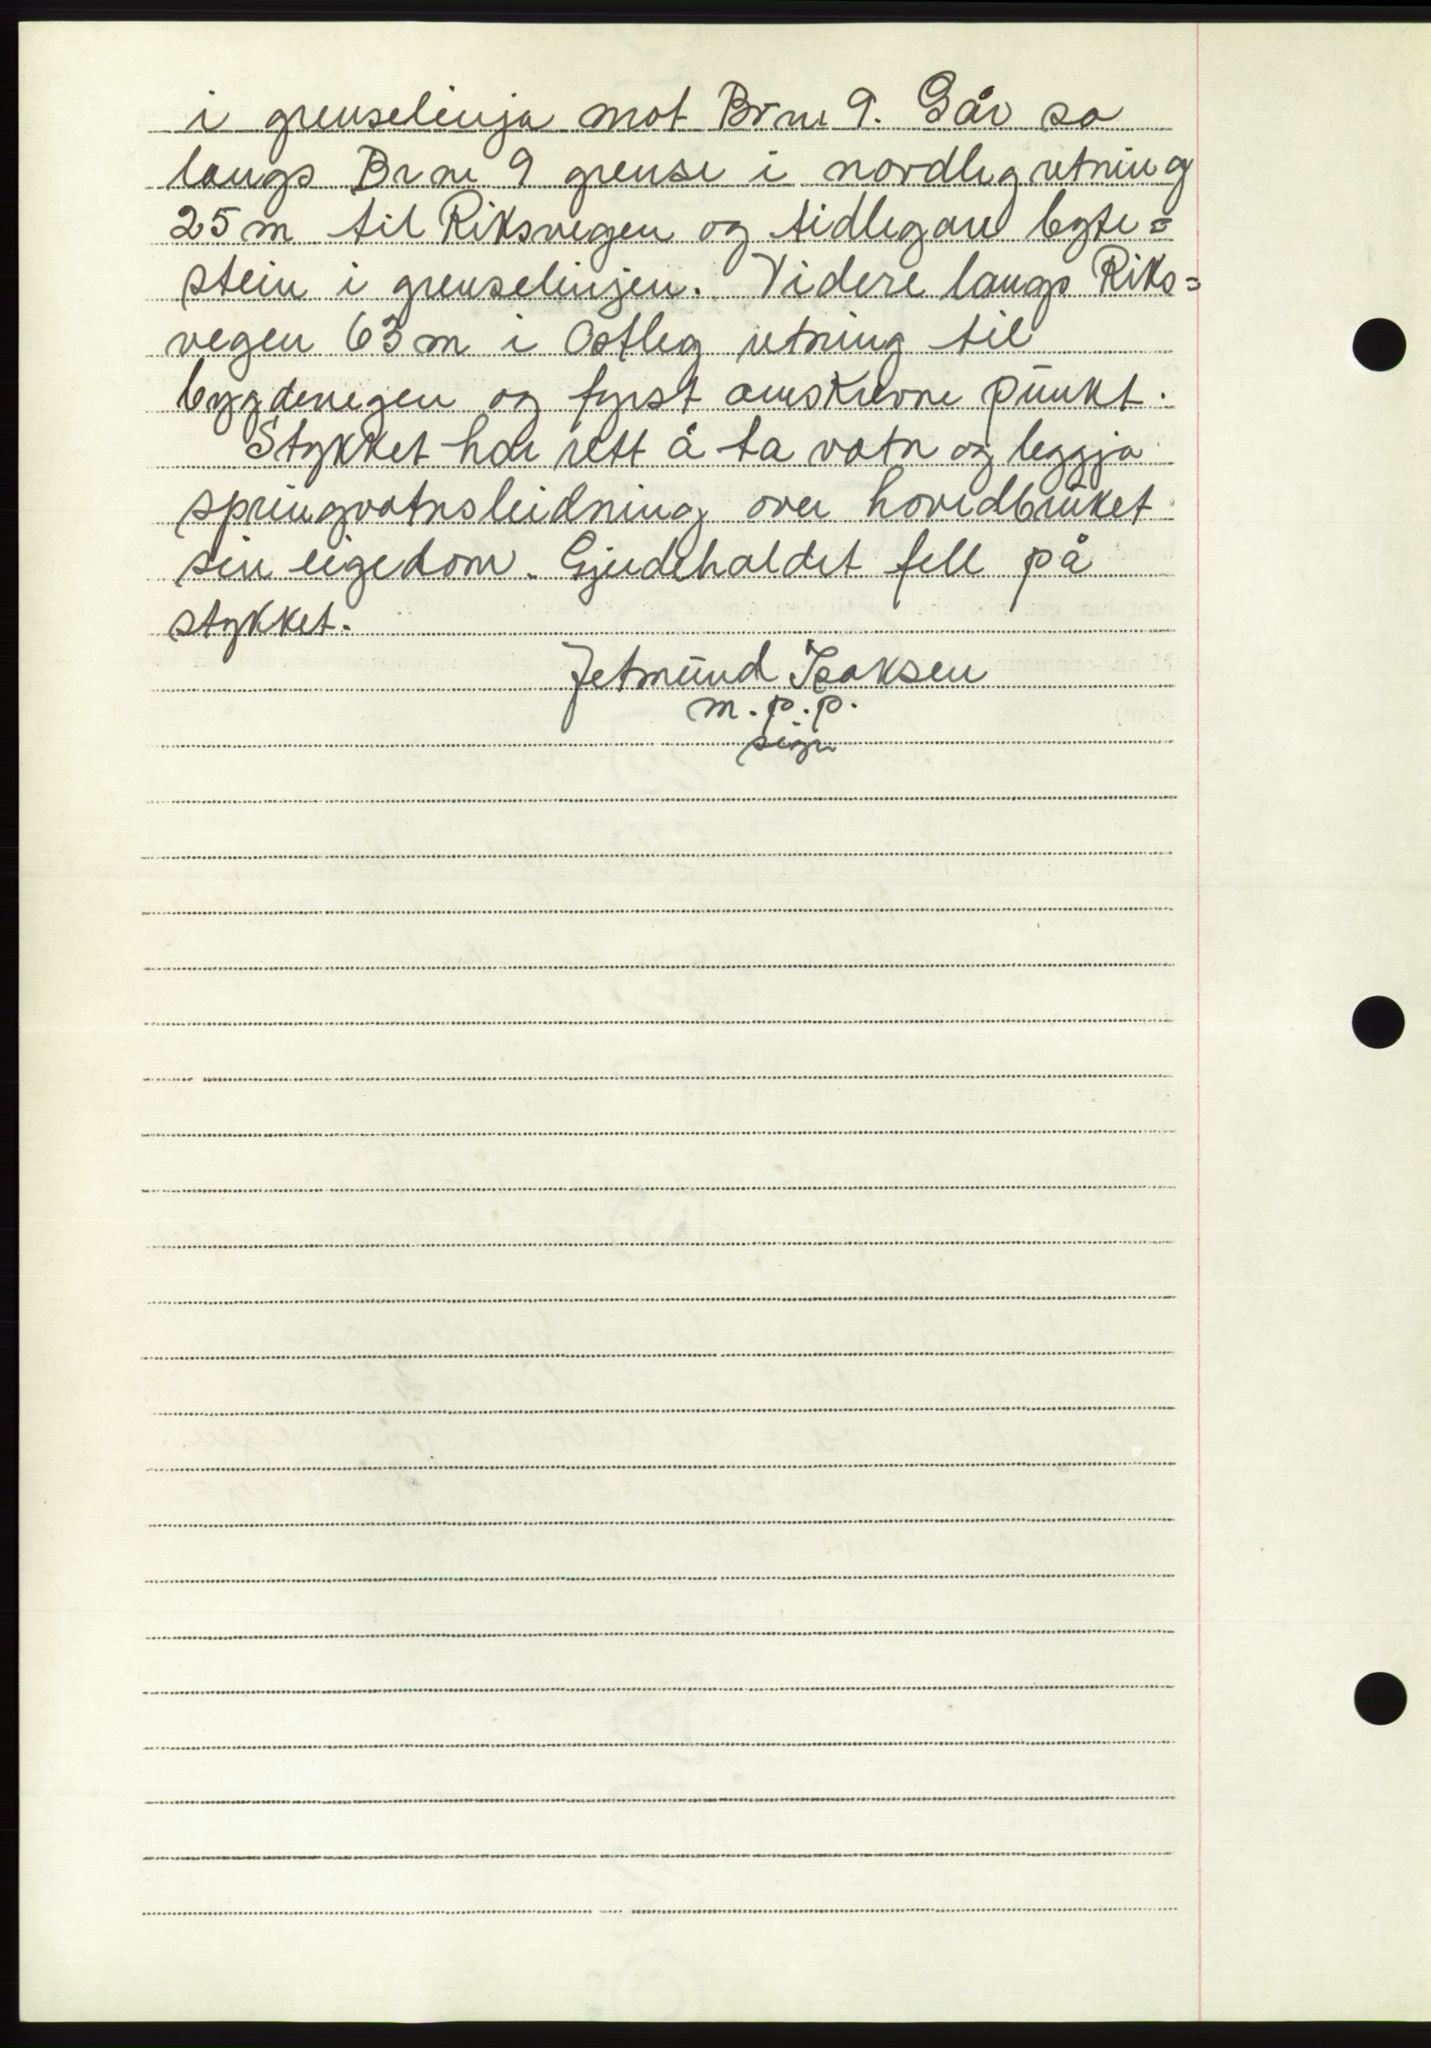 i grenselinja mot Br nr 9. Går so
langs Br nr 9 grense i nordleg retning
25 m til Riksvegen og tidlegare byte=
stein i grenselinjen. Videre langs Riks=
vegen 63 m i Ostleg retning til
bygdevegen og fyrst omskrevne punkt.
Stykket har rett å ta vatn og leggja
springvatnsleidning over hovedbruket
sin eigedom. Gjerdehaldet fell på
stykket.
Jetmund Isaksen
m.p.p.
sign